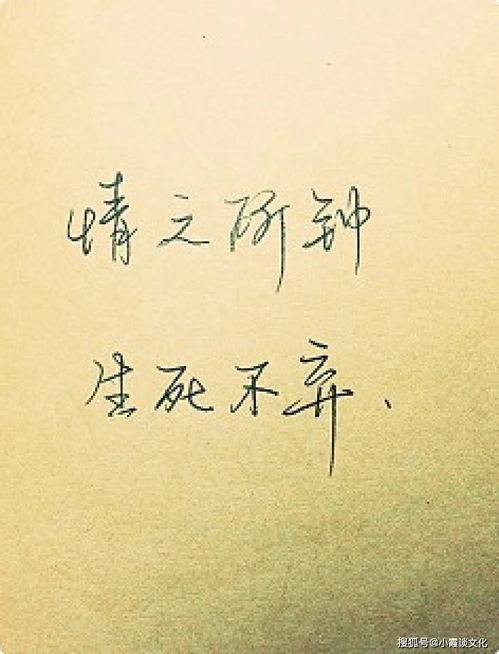 情之所钟
生死不弃、
搜狐号@小霞谈文化